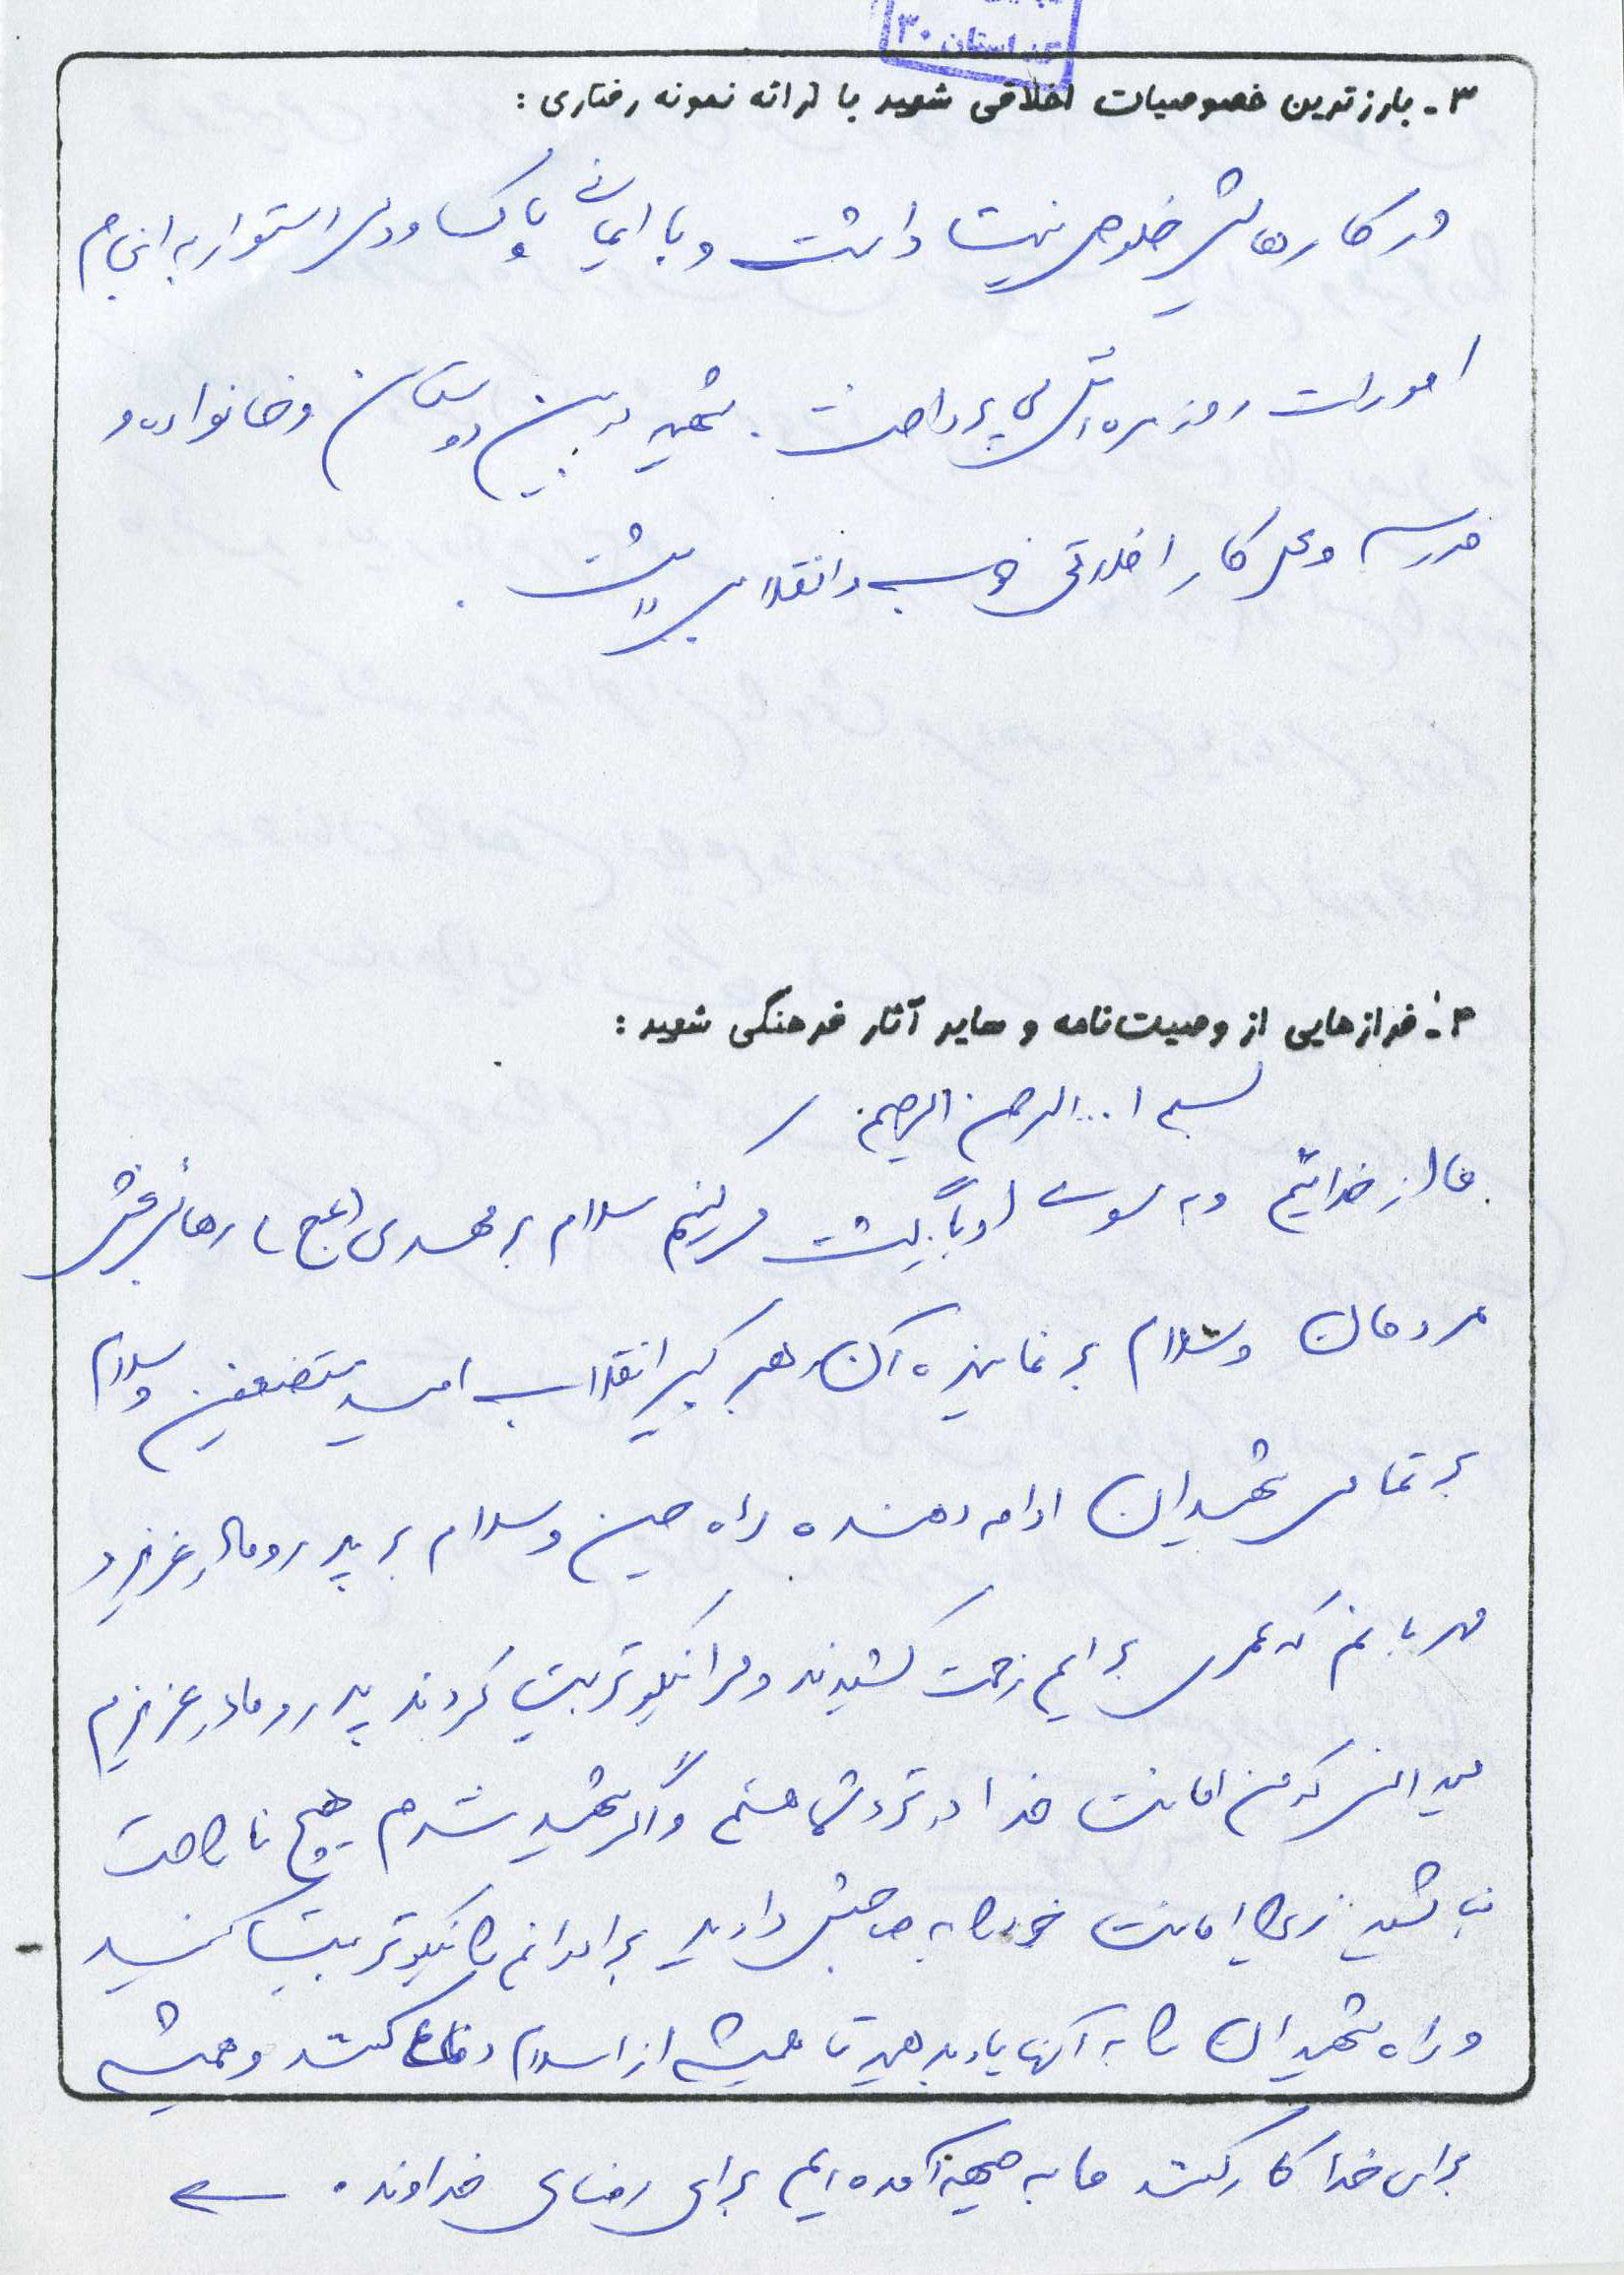 استان ۳۰
۳- بارزترین خصوصیات اخلاقی شهید با ارائه نمونه رفتاری:
در کارهایش خلوص نیت داشت و با ایمانی پاک و دلی استوار به انجام
امورات روزمره اش می پرداخت. شهید در بین دوستان و خانواده و
مدرسه و محل کار اخلاقی خوب و انقلابی داشت.
۴- فرازهایی از وصیت‌نامه و سایر آثار فرهنگی شهید:
بسم ا... الرحمن الرحیم
ما از خدائیم و به سوی او بازگشت می کنیم سلام بر مهدی (عج) رهائی بخش
مردمان و سلام بر نماینده آن رهبر کبیر انقلاب امید مستضعفین و سلام
بر تمامی شهیدان ادامه دهنده راه حسین و سلام بر پدر و مادر عزیز و
مهربانم که عمری برایم زحمت کشیدند و مرا نیکو تربیت کردند پدر و مادر عزیزم
من امانت خدا در نزد شما هستم و اگر شهید شدم هیچ ناراحت
نباشید زیرا امانت خود را به صاحبش دادید برادرانم را نیکو تربیت کنید
و راه شهیدان را به آنها یاد بدهید تا همیشه از اسلام دفاع کنند و همیشه
برای خدا کار کنند ما به جبهه آمده ایم برای رضای خداوند.